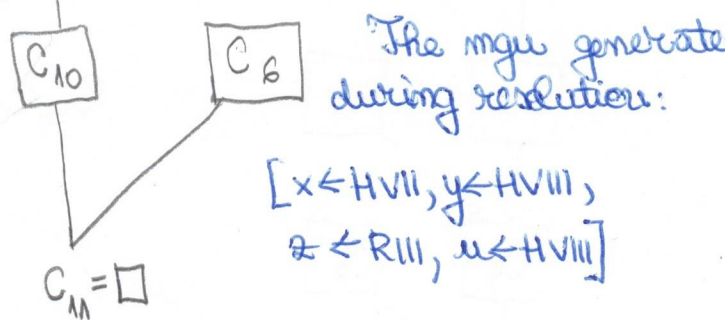 C₁₀
C₆
The mgu generate
during resolution:
[x←HVII, y←HVIII,
z←RIII, u←HVIII]
C₁₁=□